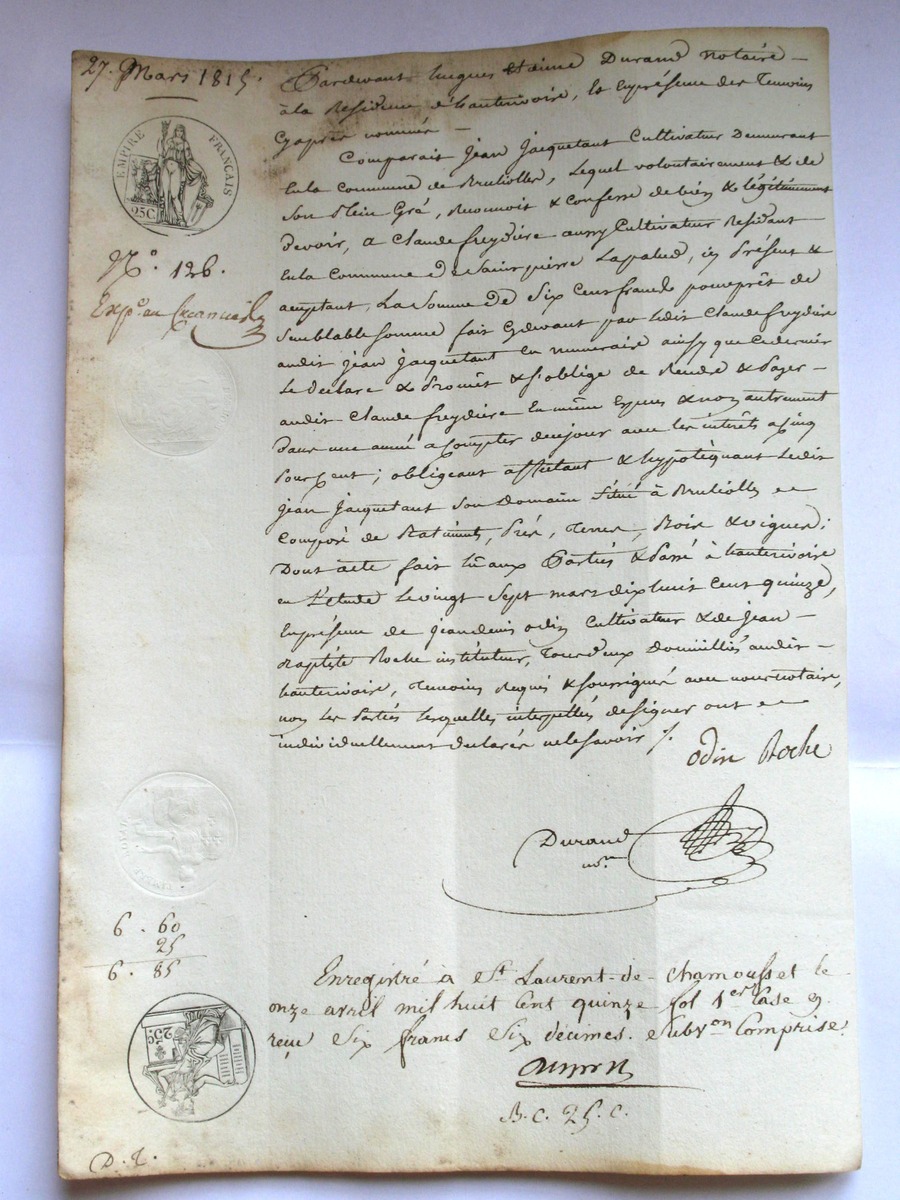 27. Mars 1815.
EMPIRE FRANÇAIS
25C
N.° 126.
Exp.é au
Pardevant hugues Durand Notaire
à la Residence d'hauterivoire, & en présence des Temoins
cy après nommés
Comparait jean jacquetant Cultivateur Demeurant
En la Commune de Brulioles, Lequel volontairement & de
Son Plein Gré, Reconnoit & Confesse de bien & légitimement
devoir, a Claude freydière aussy Cultivateur Residant
En la Commune de Saint pierre Lapalud, icy Présent &
acceptant, La Somme de Six Cent francs pour prêt de
Semblable Somme fait cydevant par Ledit Claude freydière
audit jean jacquetant en numeraire ainsy que ce dernier
Le déclare & Promet & s'oblige de Rendre & Payer
audit Claude freydière En même Especes & non autrement
Dans une année a Compter de ce jour avec les interêts a cinq
Pour Cent ; obligeant affectant & hypotèquant Ledit
jean jacquetant Son Domaine Situé à Brulioles
Composé de Batiments, Prés, Terres, Bois & vignes ;
Dont acte fait Lu aux Parties & Passé à hauterivoire
en L'etude Le vingt Sept mars dix huit Cent quinze,
En présence de jean denis odin Cultivateur & de jean
Baptiste Roche instituteur, Tous deux Domiciliés audit
hauterivoire, Temoins Requis & soussignés avec nous notaire,
non les Parties lesquelles interpellés de signer ont
individuellement declarés ne le savoir /.
odin Roche
Durand
no.re
6 . 60
25
6 . 85
Enregistré a St Laurent-de-Chamousset le
onze avril mil huit Cent quinze fol 1er Case 9
reçu Six francs Six decimes. Subv.on Comprise.
B. C. 25. C.
25C
D. T.